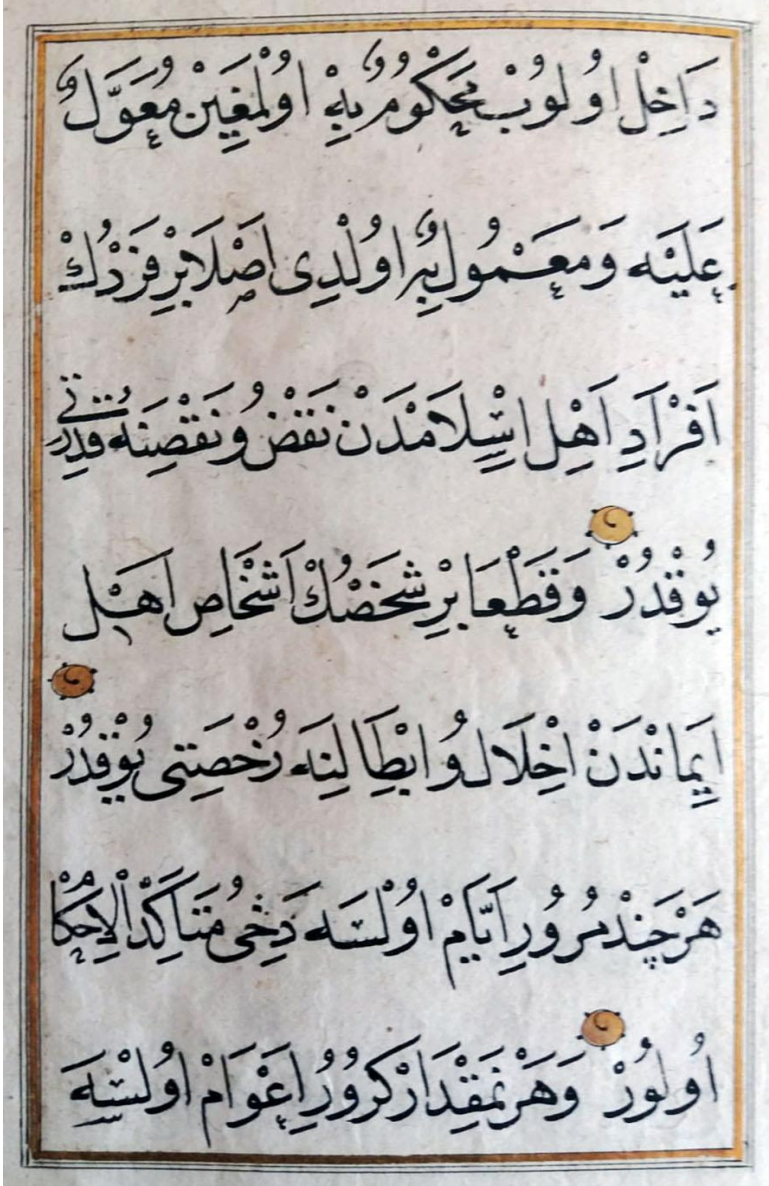 دَاخِلْ اوُلوُبْ مَحْكوُمُ بِهْ اوُلْمَغِيِنْ مُعَوَّلُ
عَلَيْهِ وَمَعْمُولُ بِهْ اوُلْدِى اَصْلَا بِرْ فَرْدُكْ
اَفْرَادِ اَهْلِ اِسْلَامْدَنْ نَقْضُ وُ نَقْصِنَهْ قُدْرَتِى
يُوقْدُرْ وَقَطْعَا بِرْ شَخْصُكْ اَشْخَاصِ اَهْلِ
اِيمَانْدَنْ اِخْلَالُ وُ اِبْطَالِنَهْ رُخْصَتِى يُوقْدُرْ
هَرْ چَنْدْ مُرُورِ اَيَّامْ اوُلْسَهْ دَخِى مُتَأَكِّدْ الْاِحْكَامْ
اوُلوُرْ وَهَرْ نَمِقْدَارْ كُرُورُ اِعْوَامْ اوُلْسَهْ